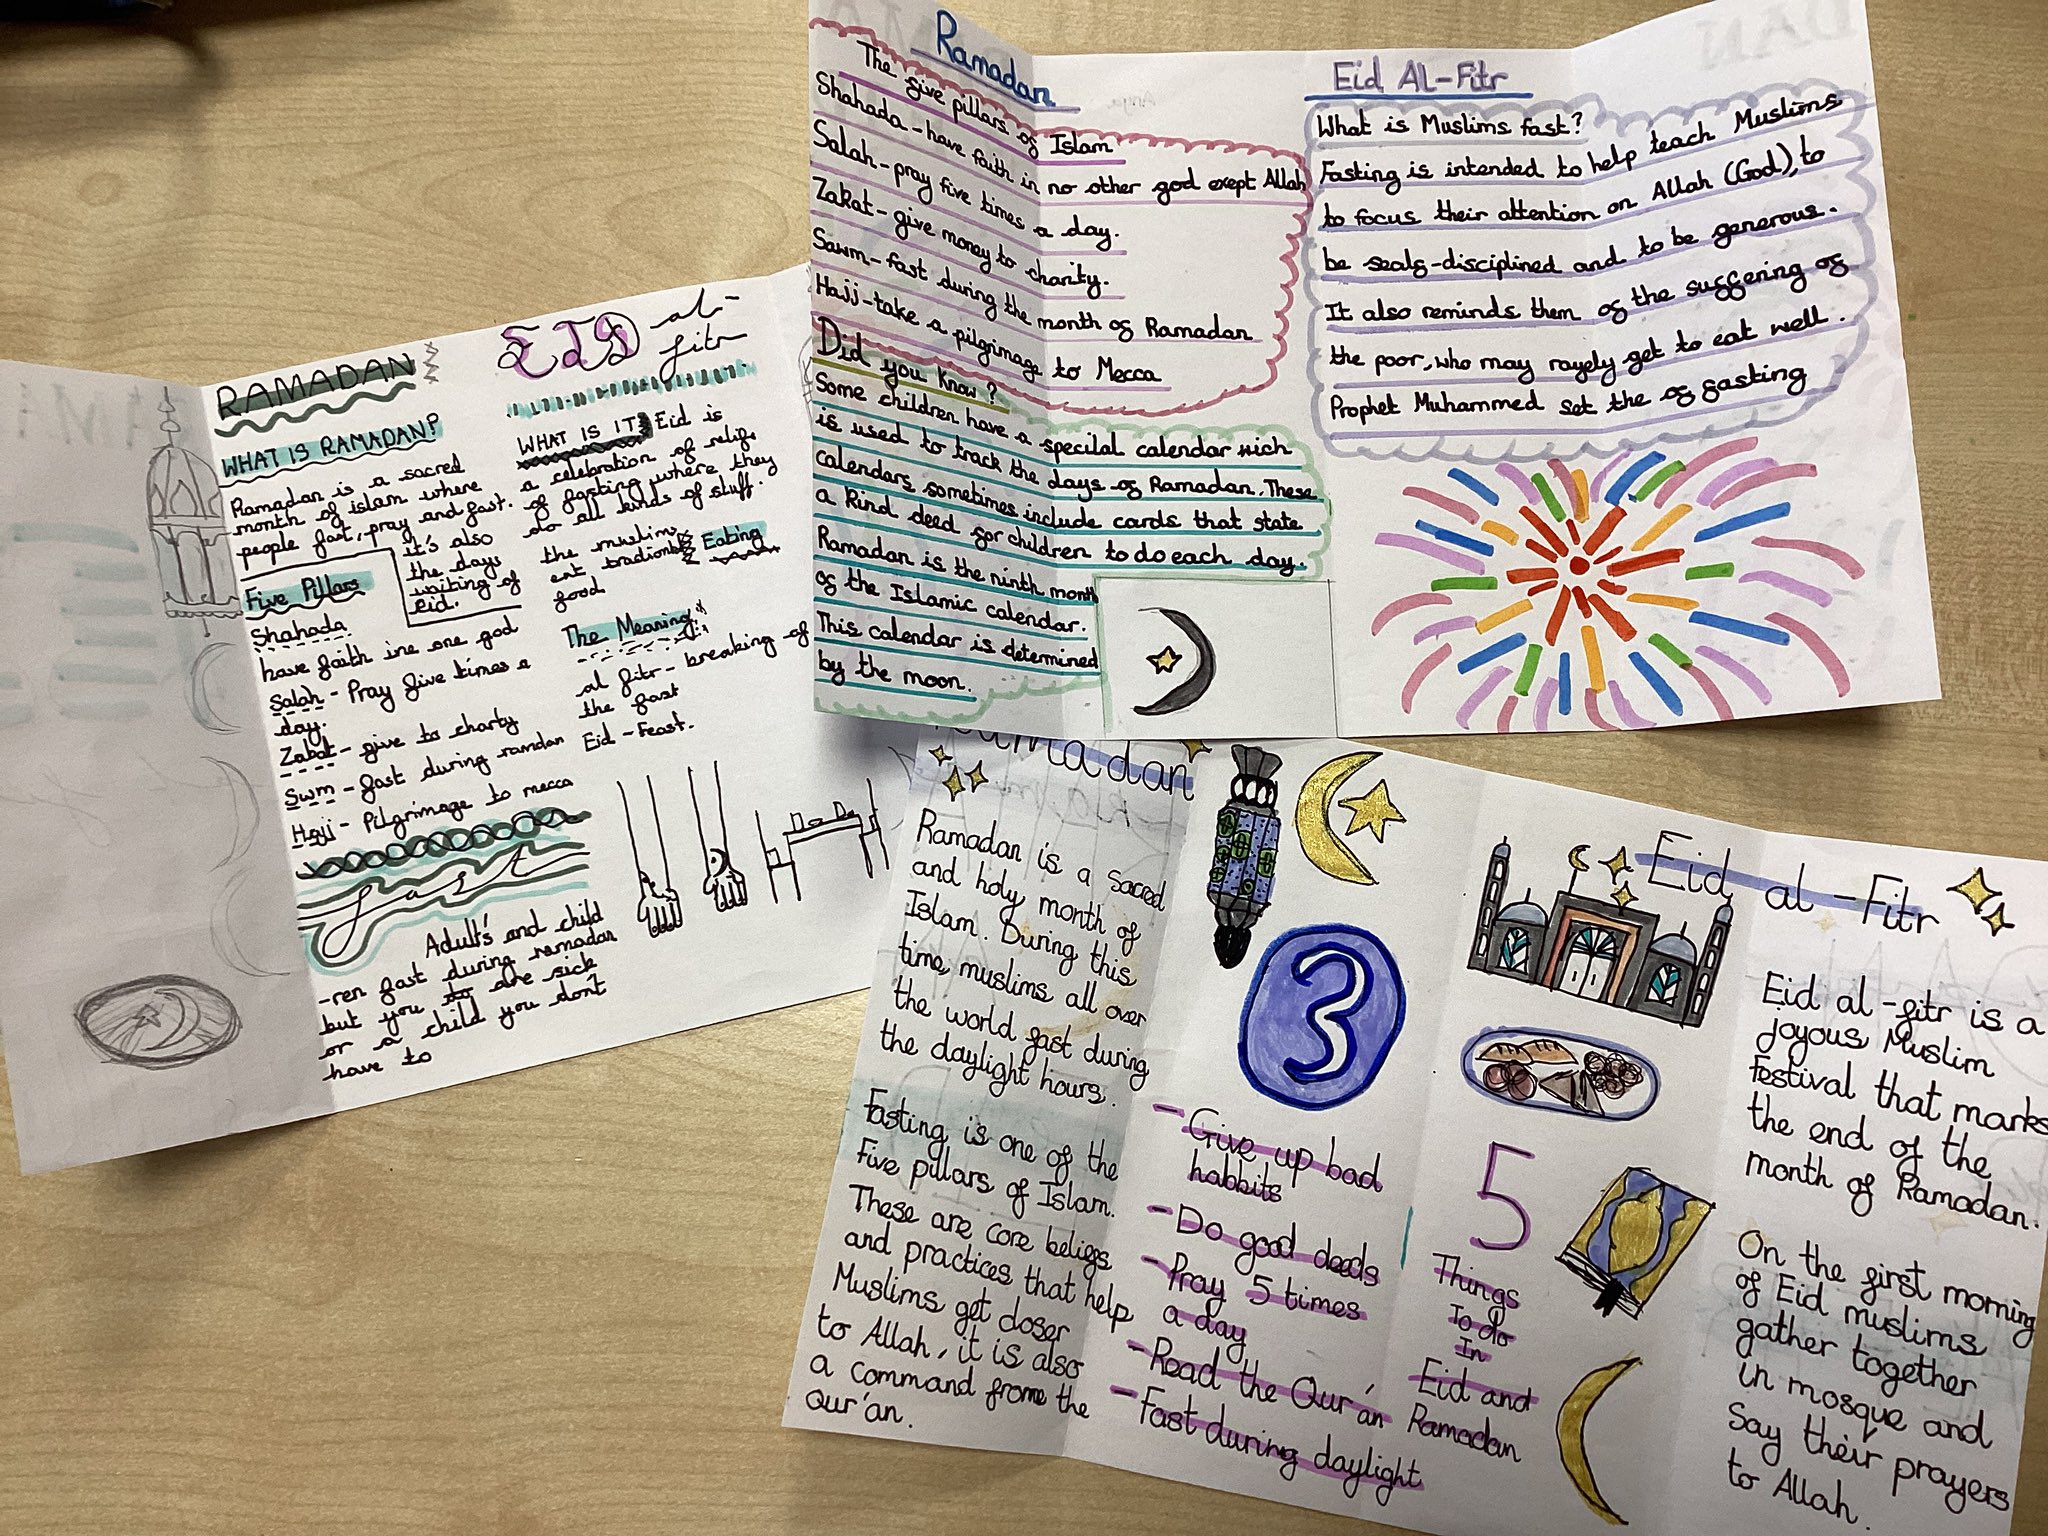 RAMADAN
WHAT IS RAMADAN?
Ramadan is a sacred
month of islam where
people fast, pray and fast.
it's also
the days
waiting of
eid.
Five Pillars
Shahada
have faith ine one god
Salah - Pray five times a
day.
Zakat - give to charty
Swm - fast during ramdan
Hajj - Pilgrimage to mecca
fast
Adult's and child
-ren fast during ramadan
but you to are sick
or a child you dont
have to
EID al-
fitr
WHAT IS IT Eid is
a celebration of relige
of fasting where they
do all kinds of stuff.
the muslims Eating
eat tradional
food
The Meaning
al fitr - breaking of
the fast
Eid - Feast.
Ramadan
The five pillars of Islam
Shahada - have faith in no other god exept Allah
Salah - pray five times a day.
Zakat - give money to charity.
Sawm - fast during the month of Ramadan
Hajj - take a pilgrimage to Mecca
Did you know?
Some children have a specilal calendar wich
is used to track the days of Ramadan. These
calendars sometimes include cards that state
a kind deed for children to do each day.
Ramadan is the ninth month
of the Islamic calendar.
This calendar is determined
by the moon.
Eid Al-Fitr
What is Muslims fast?
Fasting is intended to help teach Muslims
to focus their attention on Allah (God), to
be sealf-disciplined and to be generous.
It also reminds them of the suffering of
the poor, who may rayely get to eat well.
Prophet Muhammed set the of fasting
Ramadan
Ramadan is a sacred
and holy month of
Islam. During this
time, muslims all over
the world fast during
the daylight hours.
Fasting is one of the
five pillars of Islam.
These are core beliefs
and practices that help
Muslims get closer
to Allah, it is also
a command frome the
Qur'an.
3
- Give up bad
habbits
- Do good deeds
- Pray 5 times
a day
- Read the Qur'an
- Fast during daylight
5
Things
To do
In
Eid and
Ramadan
Eid al-Fitr
Eid al-fitr is a
joyous Muslim
Festival that marks
the end of the
month of Ramadan.
On the first morning
of Eid muslims
gather together
in mosque and
Say their prayers
to Allah.